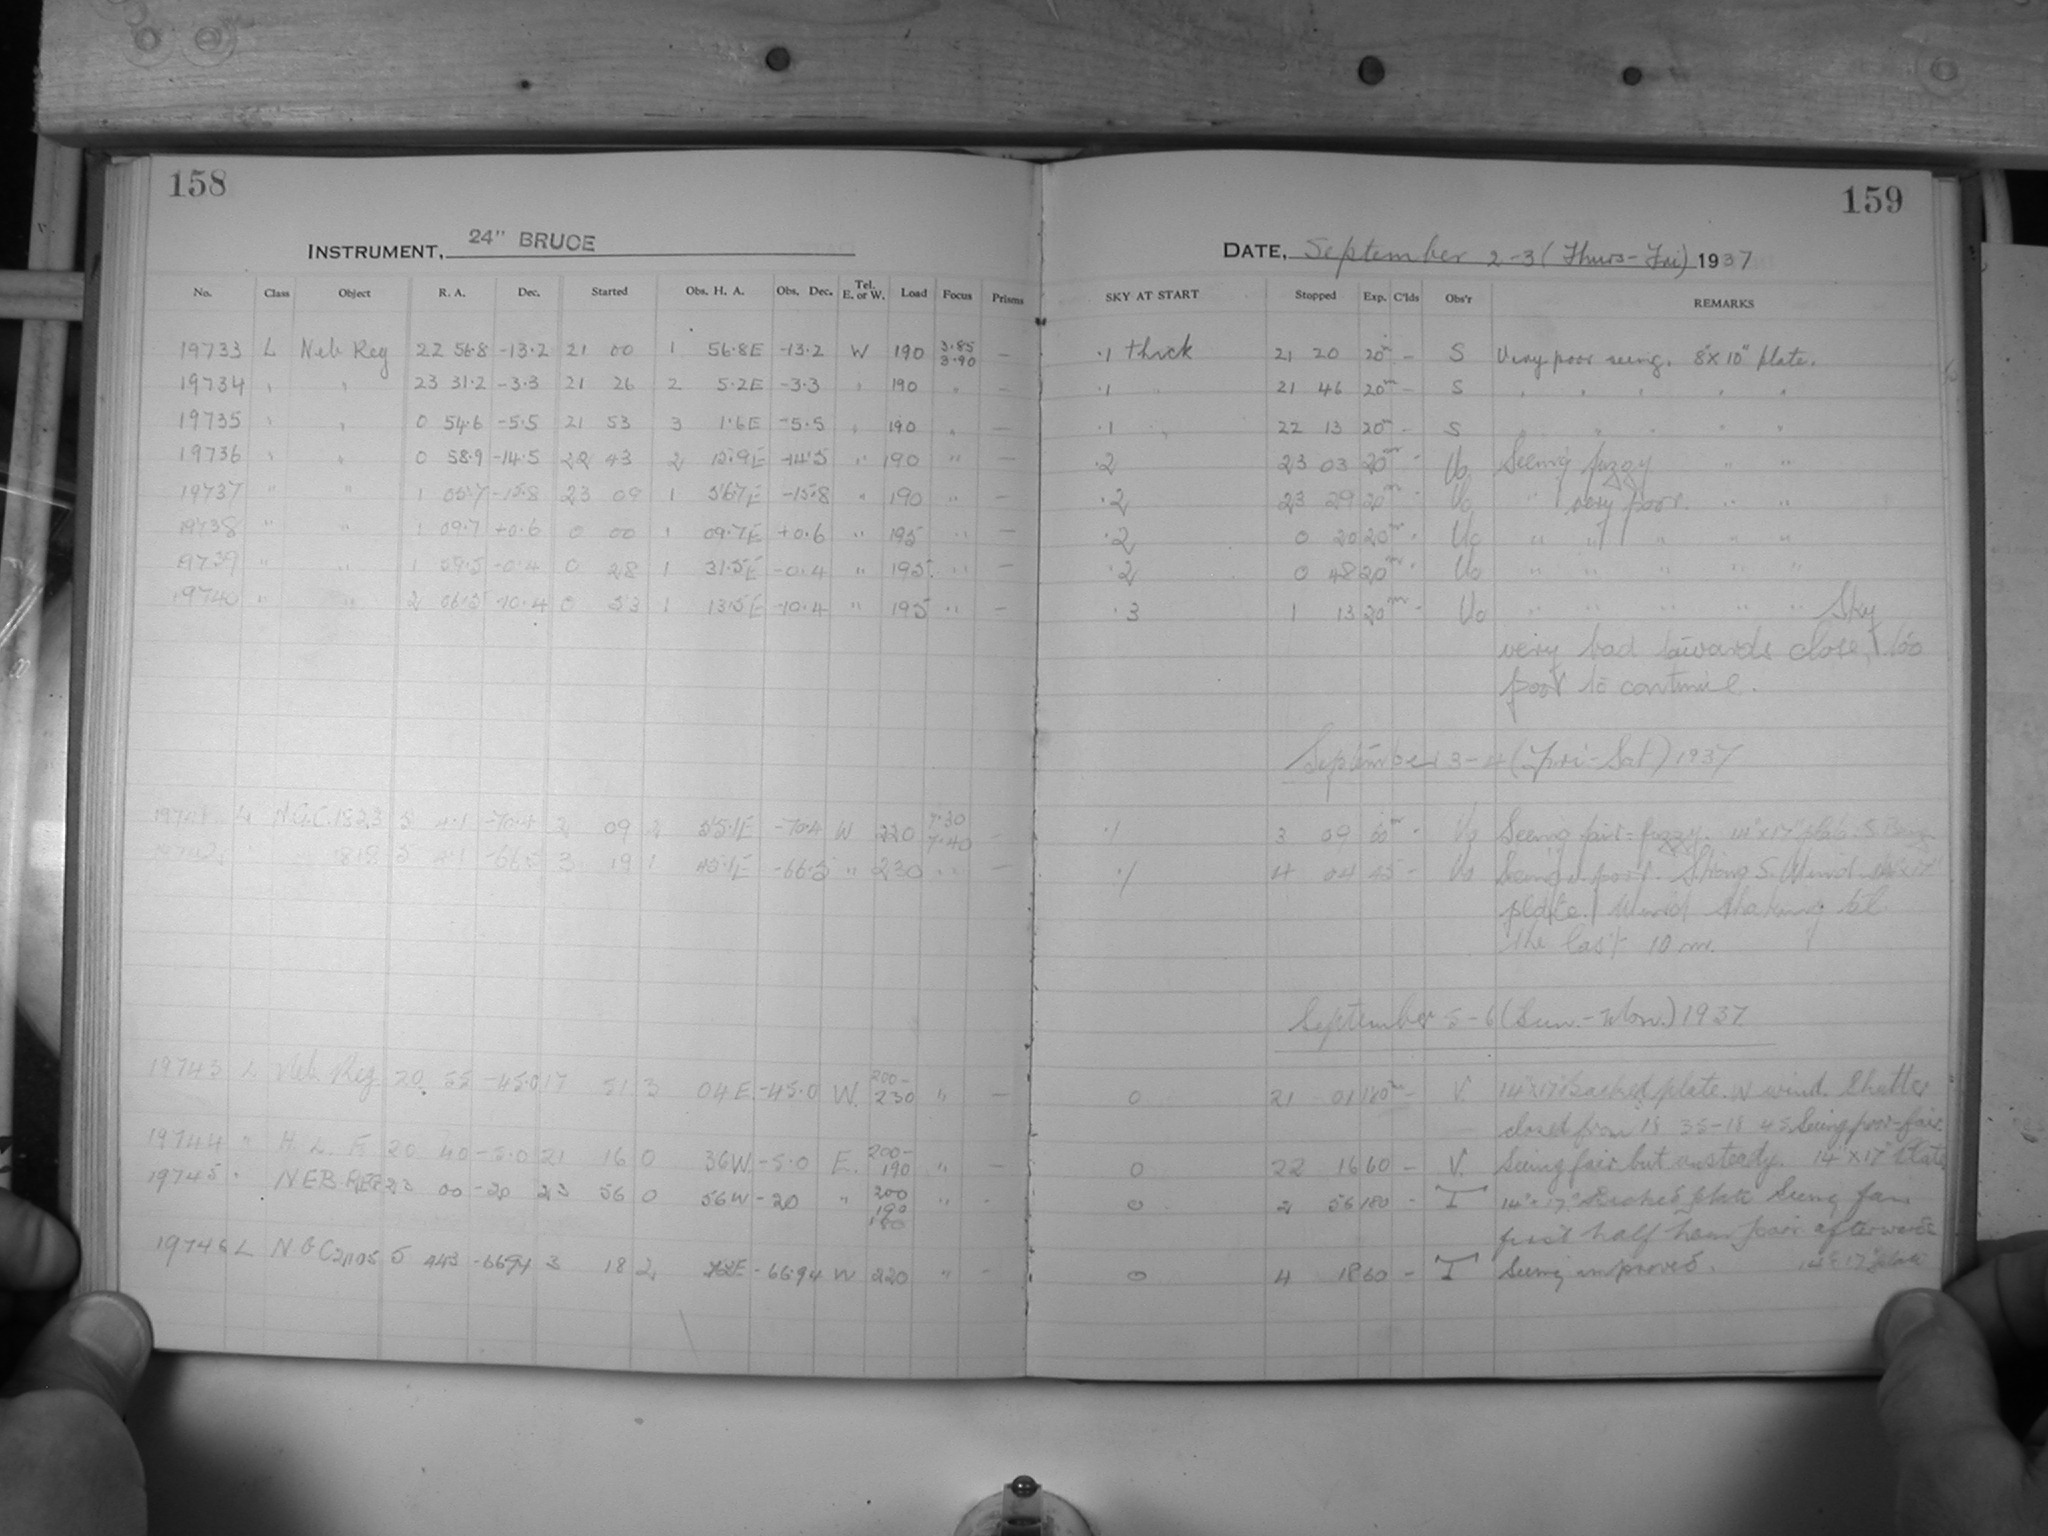 158
159
INSTRUMENT, 24" BRUCE
DATE, September 2-3 (Thurs-Fri) 1937
No. Class Object R. A. Dec. Started Obs. H. A. Obs. Dec. Tel. E. or W. Load Focus Prisms SKY AT START Stopped Exp. C'lds Obs'r REMARKS
19733 L Neb Reg 22 56.8 -13.2 21 00 1 56.8E -13.2 W 190 3.85 3.90 — .1 thick 21 20 20m - S Very poor seeing. 8"x10" plate.
19734 " " 23 31.2 -3.3 21 26 2 5.2E -3.3 " 190 " — .1 " 21 46 20m - S " " " " "
19735 " " 0 54.6 -5.5 21 53 3 1.6E -5.5 " 190 " — .1 " 22 13 20m - S " " " " "
19736 " " 0 58.9 -14.5 22 43 2 15.9E -14.5 " 190 " — .2 23 03 20m - Uo Seeing fuzzy " "
19737 " " 1 05.7 -15.8 23 09 1 56.7E -15.8 " 190 " — .2 23 29 20m - Uo " very poor. " "
19738 " " 1 09.7 +0.6 0 00 1 09.7E +0.6 " 195 " — .2 0 20 20m - Uo " " " " "
19739 " " 1 09.5 -0.4 0 28 1 31.5E -0.4 " 195 " — .2 0 48 20m - Uo " " " " "
19740 " " 2 06.5 -10.4 0 53 1 13.5E -10.4 " 195 " — .3 1 13 20m - Uo " " " " " Sky
very bad towards close, too
poor to continue.
September 3-4 (Fri-Sat) 1937
19741 L N.G.C. 1823 5 4.1 -70.4 2 09 2 55.1E -70.4 W 220 7.30 7.40 — .1 3 09 60m - Uo Seeing fair-fuzzy. 14"x17" plate. S
19742 1818 5 4.1 -66.5 3 19 1 45.1E -66.5 " 230 " — .1 4 04 45 - Uo Seeing poor. Strong S. Wind 14"x17"
plate. Wind shaking tel.
the last 10 m.
September 5-6 (Sun.-Mon.) 1937
19743 L Neb. Reg. 20 55 -45.0 17 51 3 04E -45.0 W. 200- 230 " — 0 21 01 180m - V. 14"x17" Backed plate. N wind. Shutter
closed from 18 35-18 45. Seeing poor-fair.
19744 " H. L. F. 20 40 -5.0 21 16 0 36W -5.0 E. 200- 190 " — 0 22 16 60 - V. Seeing fair but unsteady. 14"x17" Plate
19745 " NEB REG 23 00 -20 23 56 0 56W -20 " 200 190 " - 0 2 56 180 - I 14"x17" Backed plate Seeing fair
first half hour poor afterwards
19746 L NGC 5 443 -6694 3 18 2 E -6694 W 220 " - 0 4 18 60 - I Seeing improved. 14"x17" plate